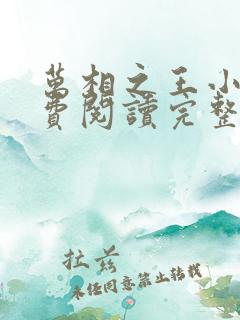 萬相之王小
費閱讀完整
拉茲
未經同意禁止轉載